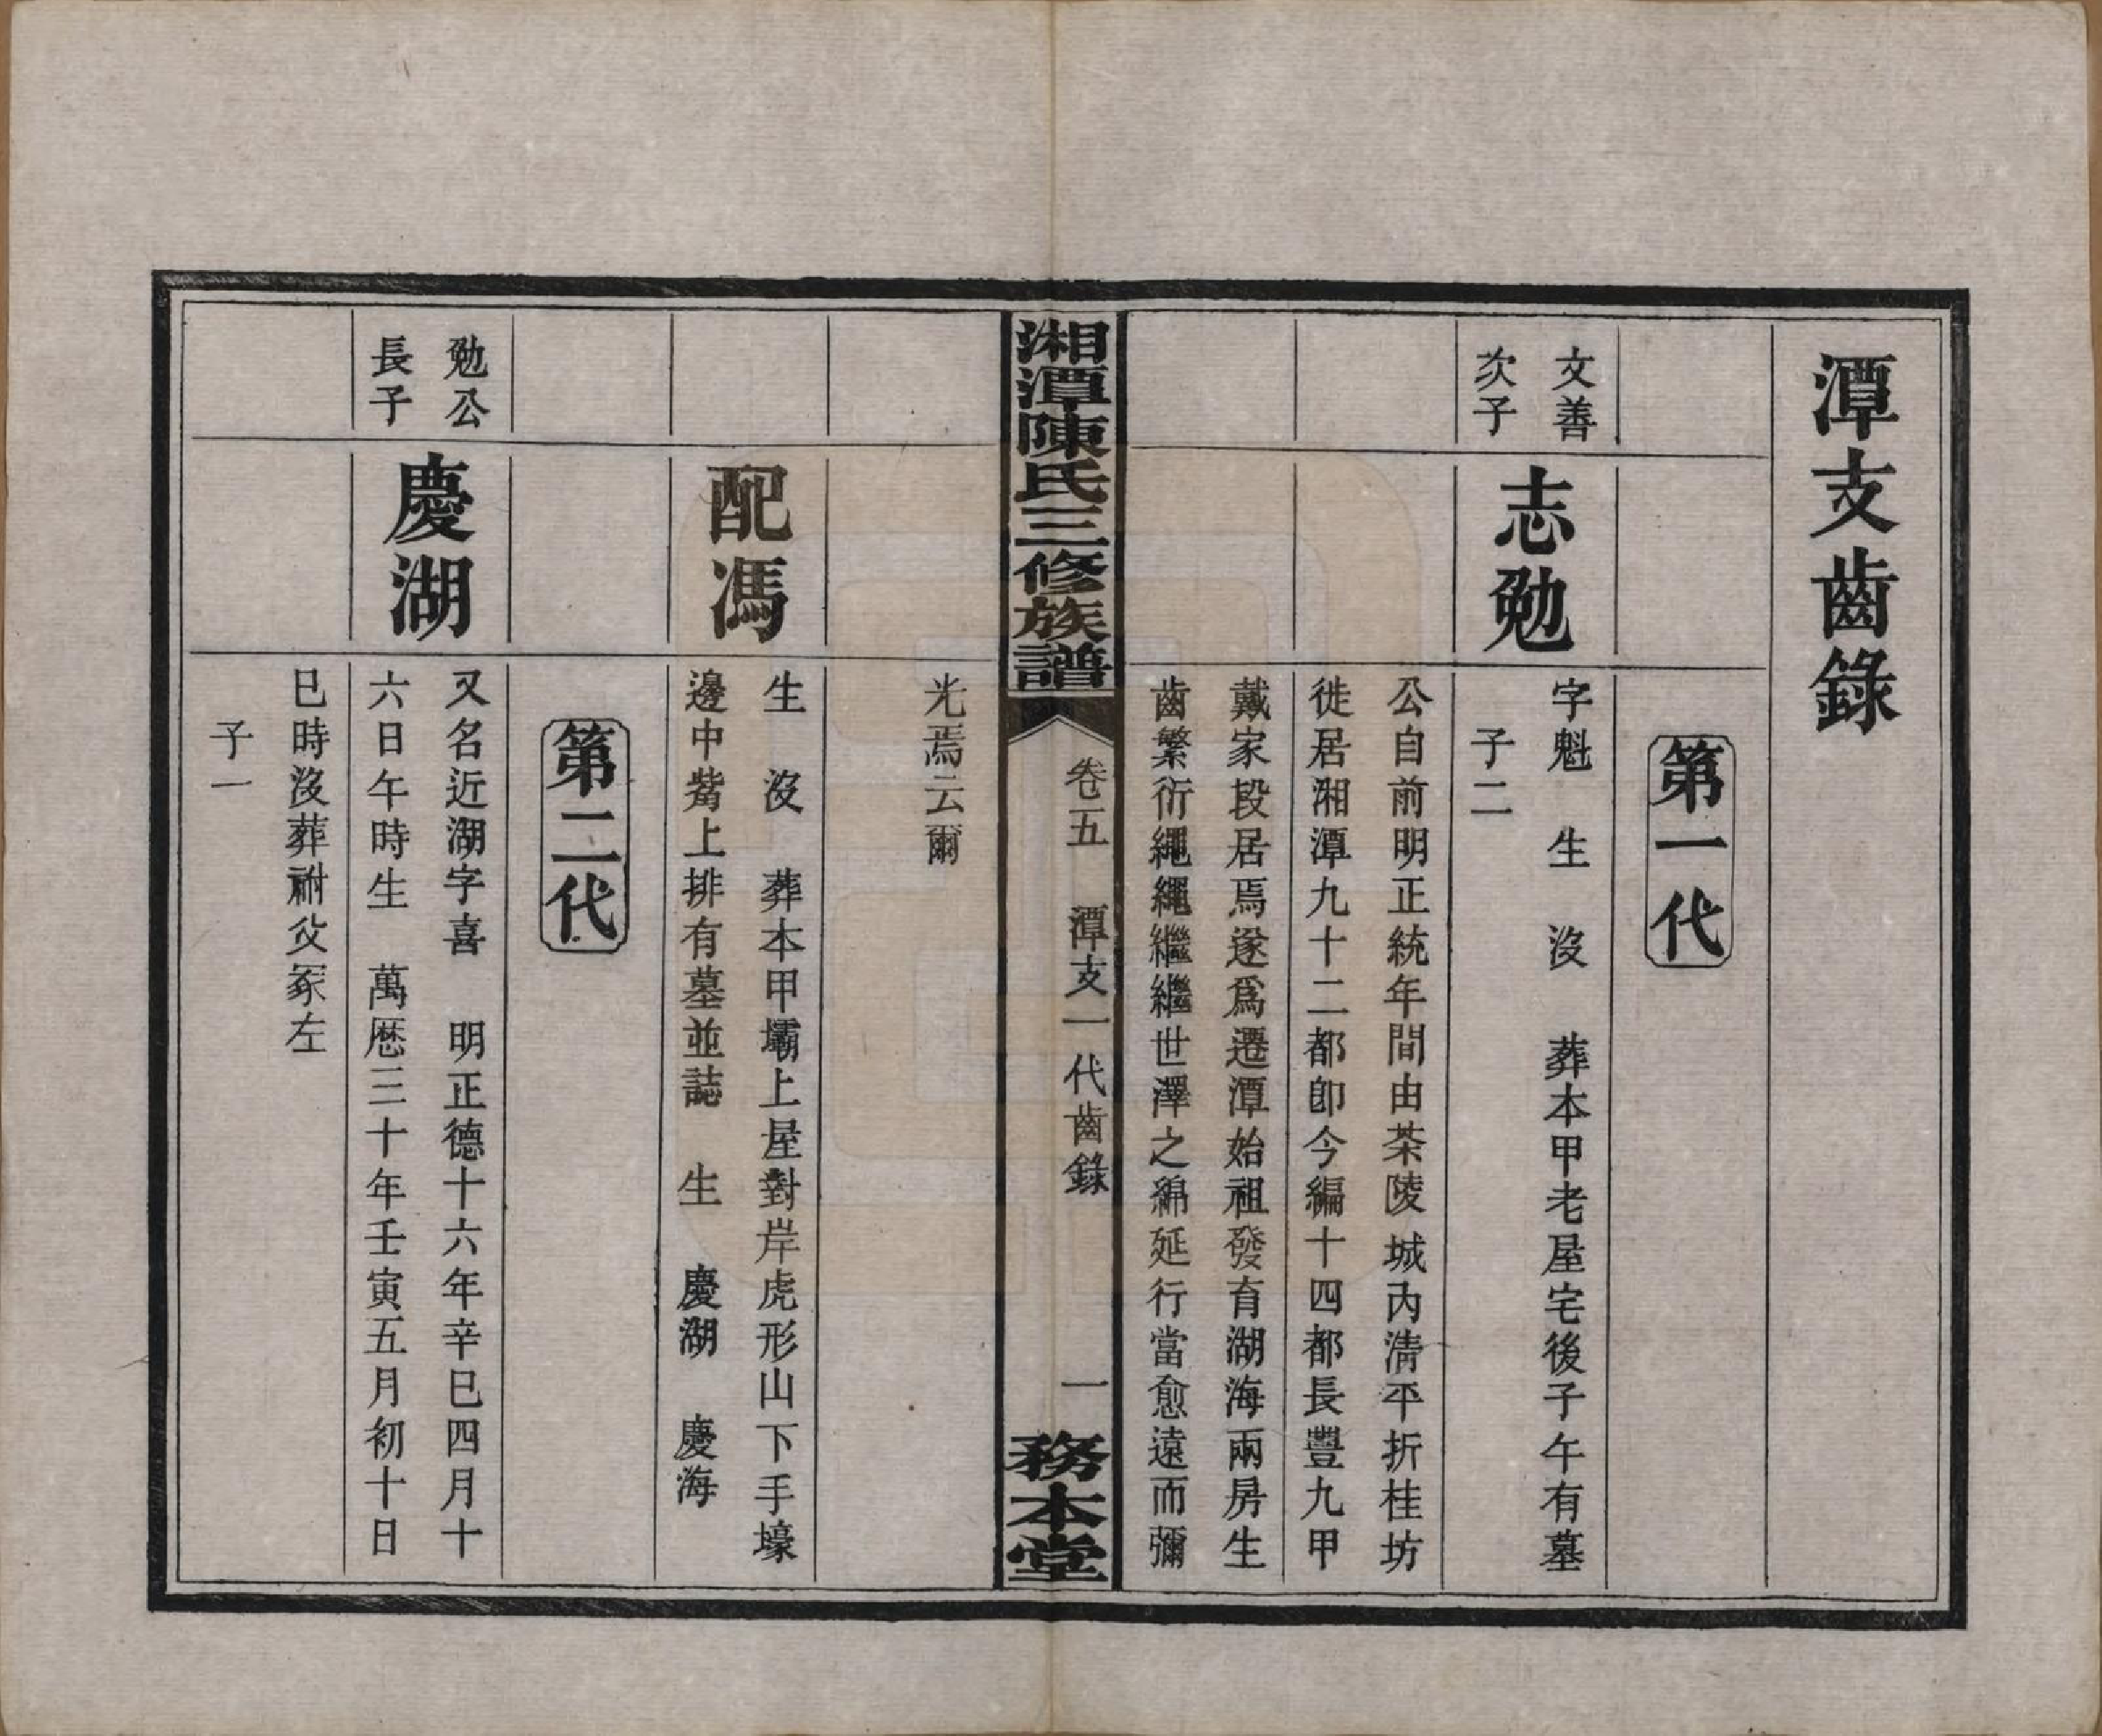 潭支齒錄
第一代
文善
次子
志勉
字魁 生 沒 葬本甲老屋宅後子午有墓
子二
公自前明正統年間由茶陵城內清平折桂坊
徙居湘潭九十二都卽今編十四都長豐九甲
戴家段居焉遂爲遷潭始祖發育湖海兩房生
齒繁衍繩繩繼繼世澤之綿延行當愈遠而彌
湘潭陳氏三修族譜
卷五 潭支一代齒錄
一
務本堂
光焉云爾
配馮
生 沒 葬本甲壩上屋對岸虎形山下手壕
邊中觜上排有墓並誌 生 慶湖 慶海
第二代
勉公
長子
慶湖
又名近湖字喜 明正德十六年辛巳四月十
六日午時生 萬歷三十年壬寅五月初十日
巳時沒葬祔父冢左
子一